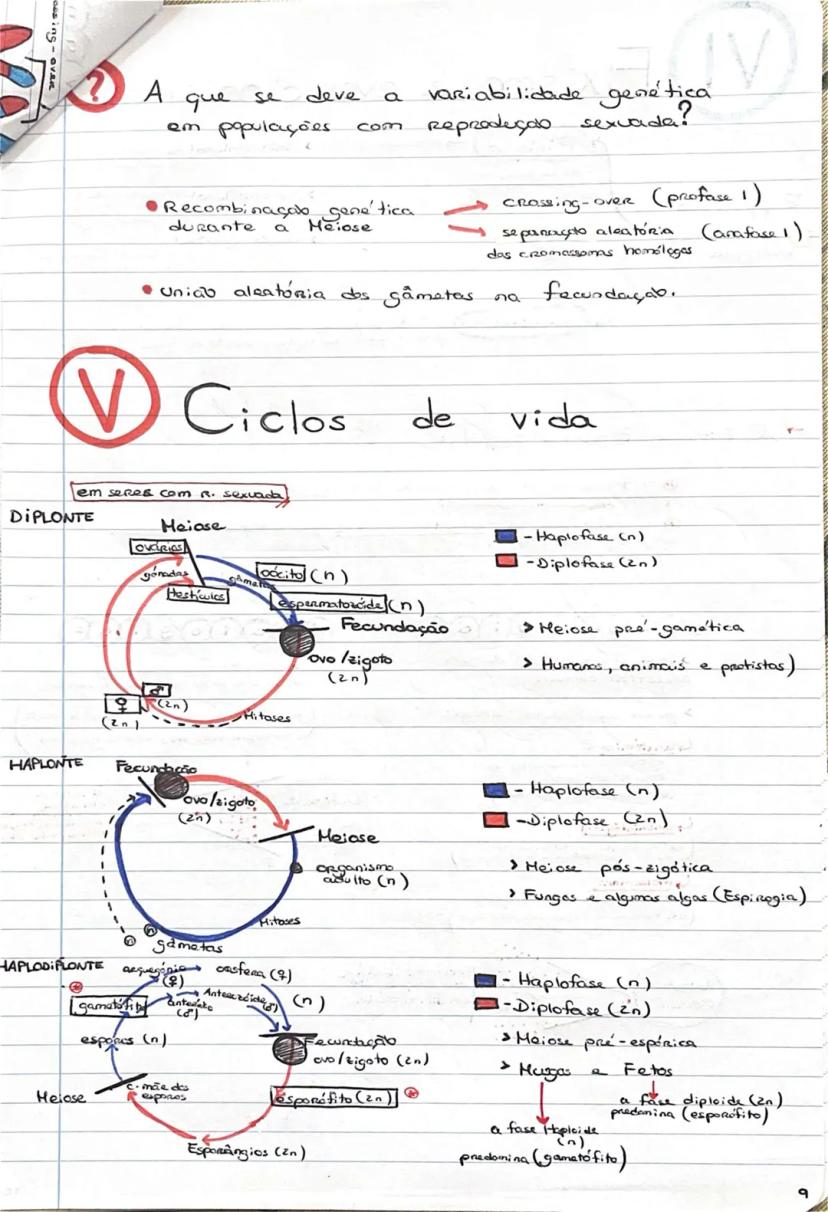 ssing-over
?
A que se deve a variabilidade genética
em populações com reprodução sexuada?
• Recombinação genética
durante a Meiose
→ crossing-over (profase 1)
→ separação aleatória (anafase 1)
dos cromossomas homólogos
• União aleatória dos gâmetas na fecundação.
V Ciclos de vida
em seres com r. sexuada
DIPLONTE
Meiose
ovários
gónadas
testículos
gâmetas
oócito (n)
espermatozóide (n)
Fecundação
ovo/zigoto
(2n)
♀
(2n)
♂
(2n)
Mitoses
- Haplofase (n)
- Diplofase (2n)
> Meiose pré-gamética
> Humanos, animais e protistas)
HAPLONTE
Fecundação
ovo/zigoto
(2n)
Meiose
organismo
adulto (n)
Mitoses
n
n
gâmetas
- Haplofase (n)
- Diplofase (2n)
> Meiose pós-zigótica
> Fungos e algumas algas (Espirogia)
HAPLODIPLONTE
arquegónio → oosfera (♀)
(♀)
gametófito
anterídeo
(♂)
Anterozóide (♂)
(n)
esporos (n)
Fecundação
ovo/zigoto (2n)
Meiose
c. mãe dos
esporos
esporófito (2n)
Esporângios (2n)
- Haplofase (n)
- Diplofase (2n)
> Meiose pré-espórica
> Musgos e Fetos
a fase diploide (2n)
predomina (esporófito)
a fase Haploide
(n)
predomina (gametófito)
9